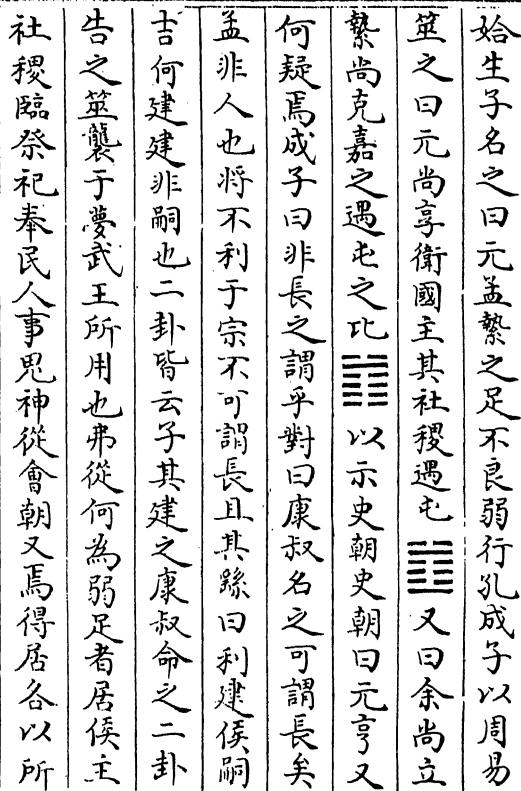 姶生子名之曰元孟縶之足不良弱行孔成子以周易
筮之曰元尚享衛國主其社稷遇屯䷂又曰余尚立
縶尚克嘉之遇屯之比䷇以示史朝史朝曰元亨又
何疑焉成子曰非長之謂乎對曰康叔名之可謂長矣
孟非人也将不利于宗不可謂長且其繇曰利建侯嗣
吉何建建非嗣也二卦皆云子其建之康叔命之二卦
告之筮襲于夢武王所用也弗從何為弱足者居侯主
社稷臨祭祀奉民人事鬼神從會朝又焉得居各以所